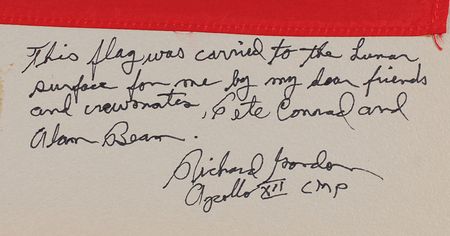 This flag was carried to the Lunar
surface for me by my dear friends
and crewmates, Pete Conrad and
Alan Bean.
Richard Gordon
Apollo XII CMP